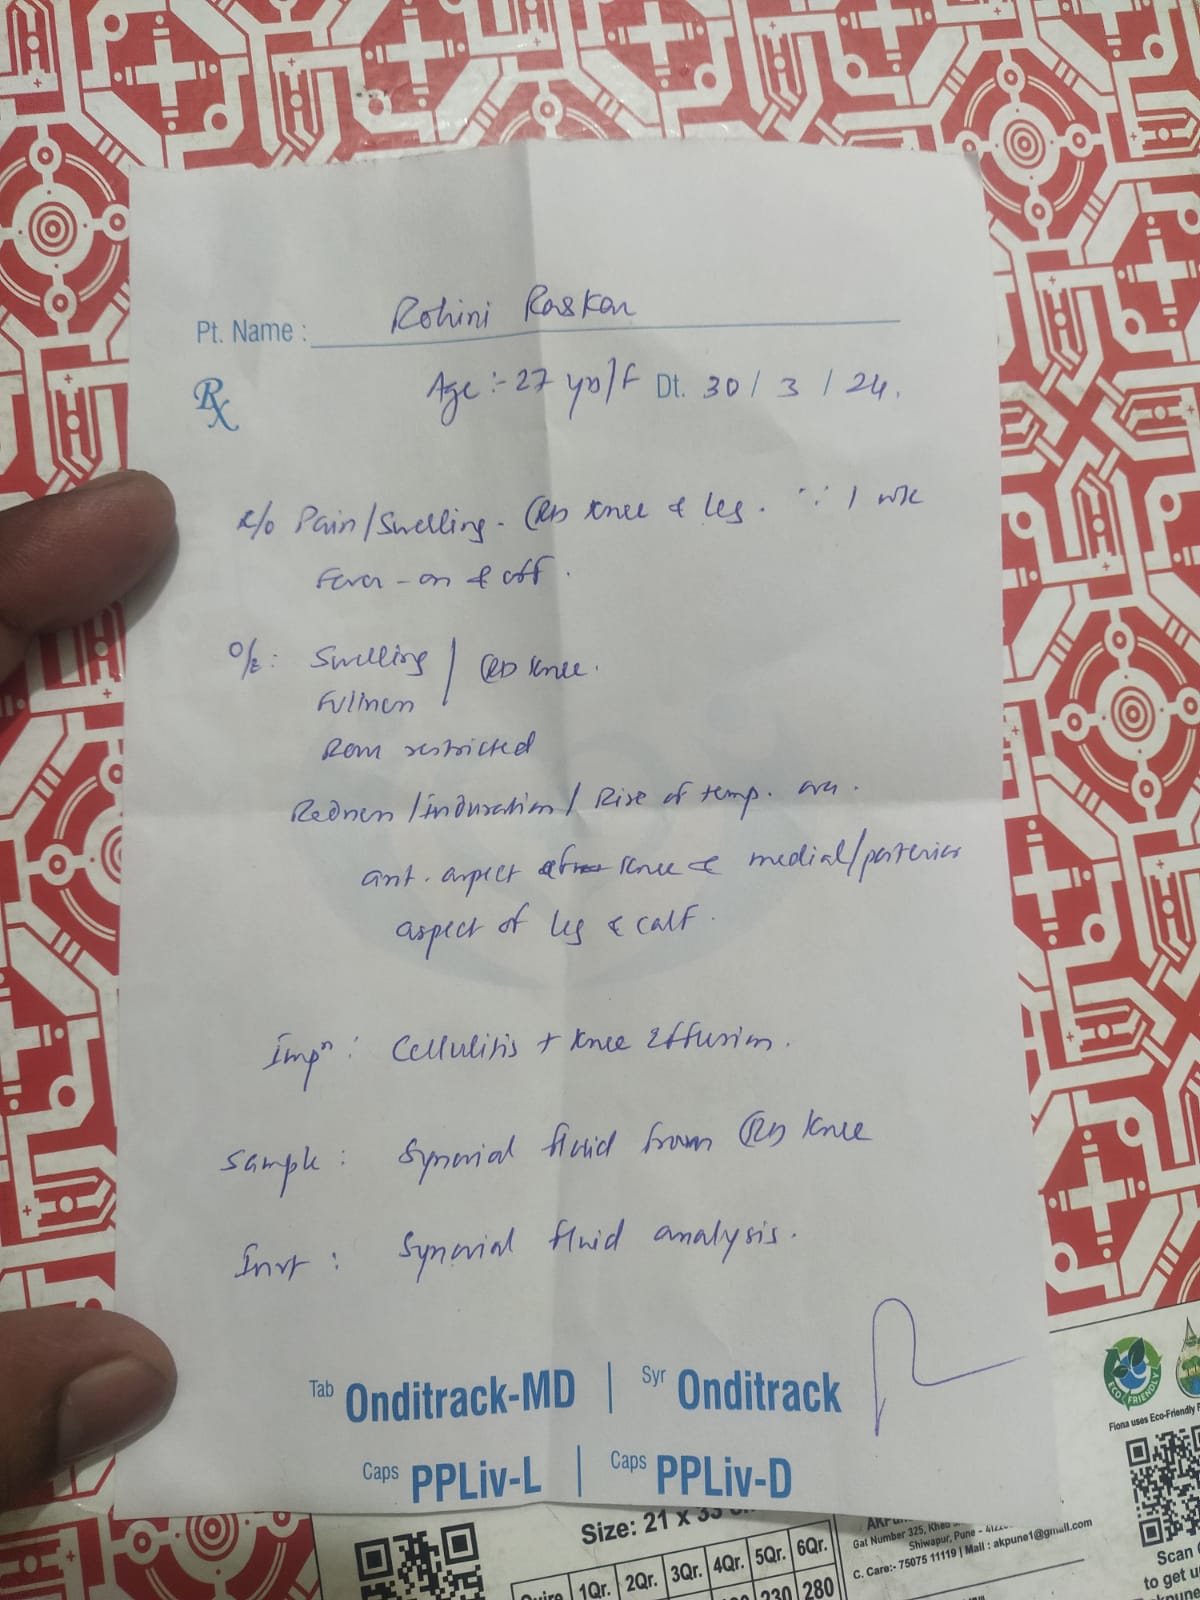 Pt. Name : Rohini Raskar
Rx
Age :- 27 yrs/F Dt. 30 / 3 / 24.
Pain/Swelling - (Rt) knee & leg. ∵ 1 wk
Fever - on & off.
O/E: Swelling / (Rt) knee.
Fullness
ROM restricted
Redness/induration/Rise of temp. over.
ant. aspect knee & medial/posterior
aspect of leg & calf.
Impn : Cellulitis + knee Effusion.
Sample : Synovial fluid from (Rt) knee
Invt : Synovial fluid analysis.
Tab Onditrack-MD | Syr Onditrack
Caps PPLiv-L | Caps PPLiv-D
ECO FRIENDLY
Fiona uses Eco-Friendly
Size: 21 x 33
Gat Number 325,
Shiwapur, Pune -
C. Care:- 75075 11119 | Mail : akpune1@gmail.com
1Qr. 2Qr. 3Qr. 4Qr. 5Qr. 6Qr.
230 280
Scan
to get